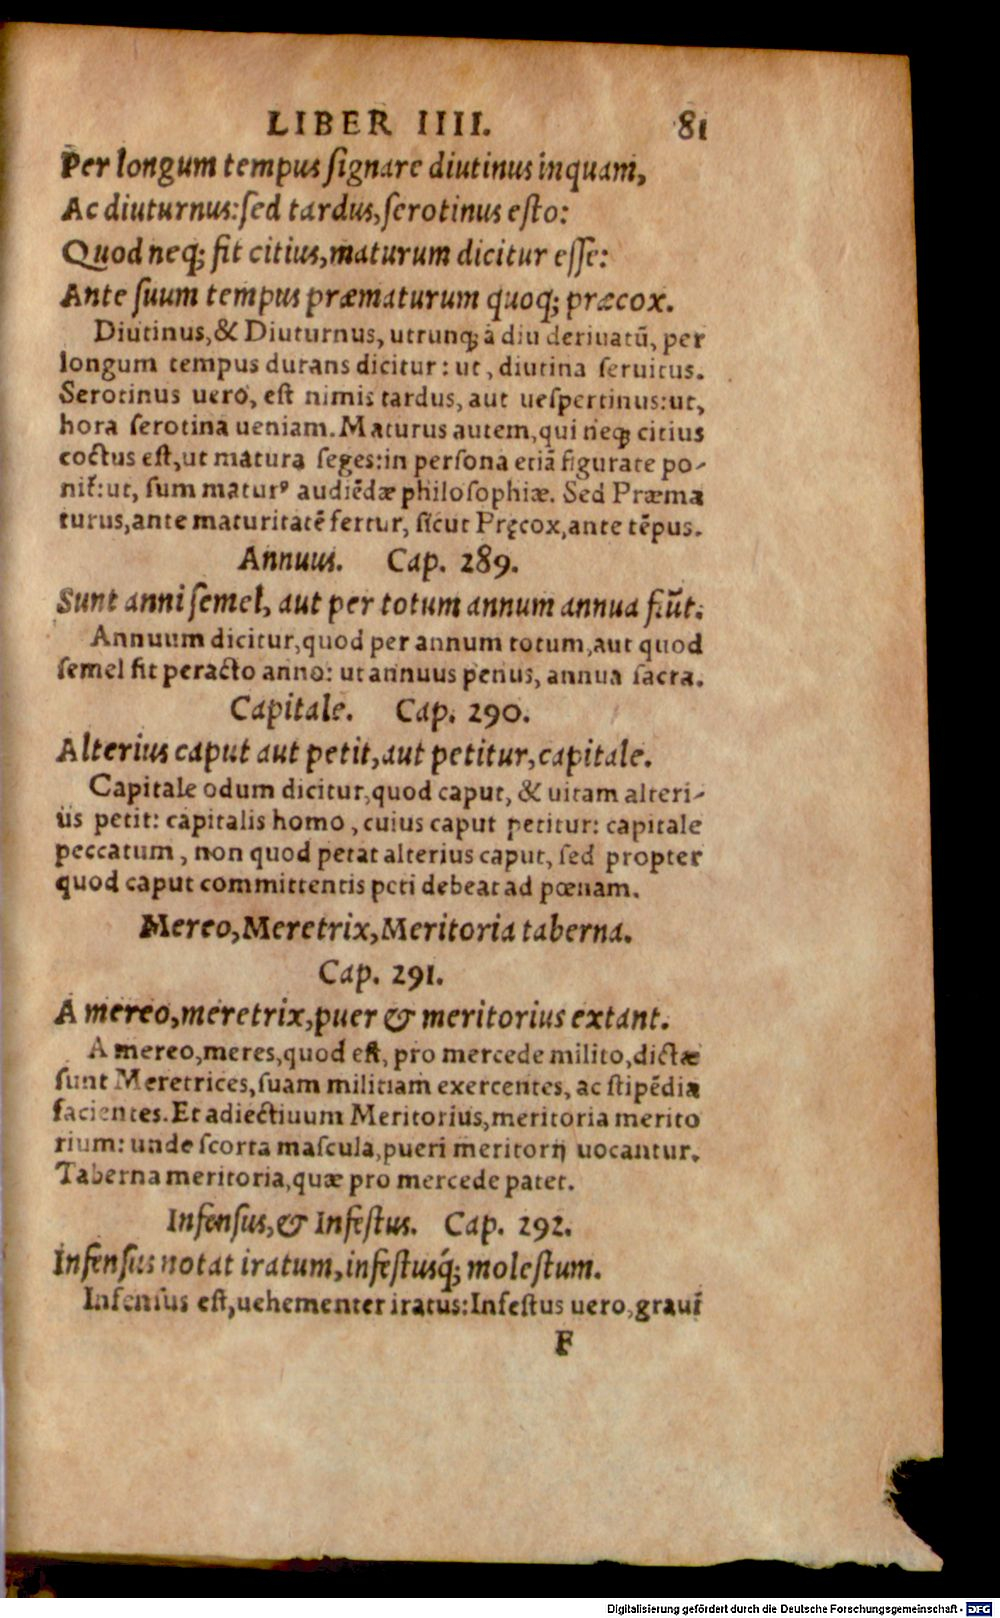 LIBER IIII. 81
Per longum tempus ſignare diutinus inquam,
Ac diuturnus: ſed tardus, ſerotinus eſto:
Quod neq; fit citius, maturum dicitur eſſe:
Ante ſuum tempus præmaturum quoq; præcox.
Diutinus, & Diuturnus, utrunq; à diu deriuatũ, per
longum tempus durans dicitur: ut, diutina ſeruitus.
Serotinus uero, eſt nimis tardus, aut ueſpertinus: ut,
hora ſerotina ueniam. Maturus autem, qui neq; citius
coctus eſt, ut matura ſeges: in perſona etiã figurate po-
nit̃: ut, ſum maturꝰ audiẽdæ philoſophiæ. Sed Præma
turus, ante maturitatẽ fertur, ſicut Pręcox, ante tẽpus.
Annuus. Cap. 289.
Sunt anni ſemel, aut per totum annum annua fiũt.
Annuum dicitur, quod per annum totum, aut quod
ſemel fit peracto anno: ut annuus penus, annua ſacra.
Capitale. Cap. 290.
Alterius caput aut petit, aut petitur, capitale.
Capitale odum dicitur, quod caput, & uitam alteri-
us petit: capitalis homo, cuius caput petitur: capitale
peccatum, non quod petat alterius caput, ſed propter
quod caput committentis peti debeat ad pœnam.
Mereo, Meretrix, Meritoria taberna.
Cap. 291.
A mereo, meretrix, puer & meritorius extant.
A mereo, meres, quod eſt, pro mercede milito, dictæ
ſunt Meretrices, ſuam militiam exercentes, ac ſtipẽdia
facientes. Et adiectiuum Meritorius, meritoria merito
rium: unde ſcorta maſcula, pueri meritorij uocantur.
Taberna meritoria, quæ pro mercede patet.
Infenſus, & Infeſtus. Cap. 292.
Infenſus notat iratum, infeſtusq́; moleſtum.
Infenſus eſt, uehementer iratus: Infeſtus uero, graui
F
Digitalisierung gefördert durch die Deutsche Forschungsgemeinschaft - DFG